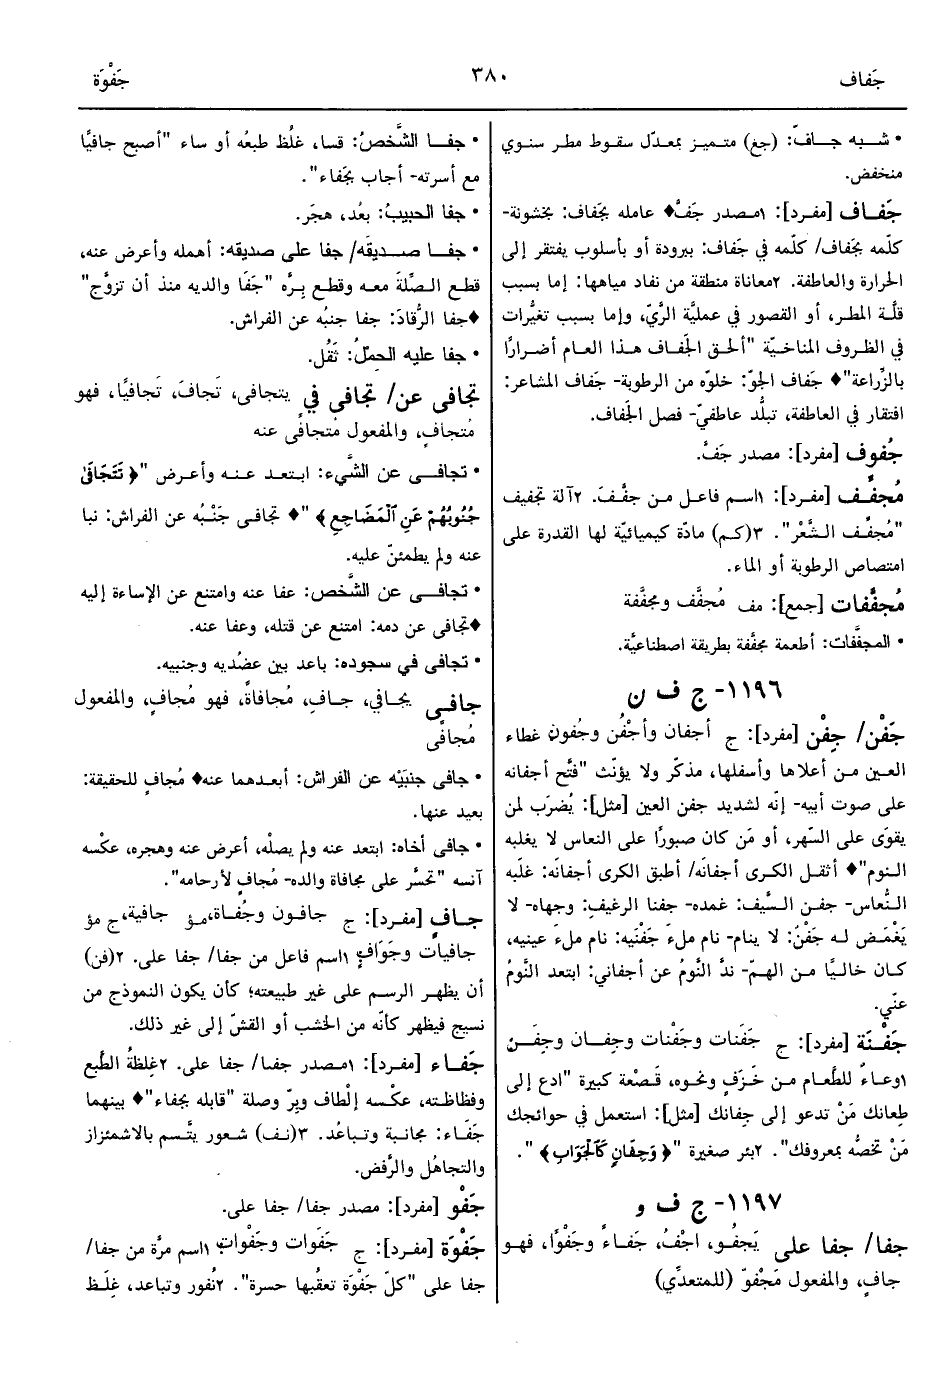 جَفاف ٣٨٠ جَفْوَة
• شبه جافّ: (جغ) متميز بمعدّل سقوط مطر سنوي
منخفض.
جَفاف [مفرد]: ١مصدر جَفَّ♦ عامله بجَفاف: بخشونة-
كلّمه بجَفاف/ كلّمه في جَفاف: ببرودة أو بأسلوب يفتقر إلى
الحرارة والعاطفة. ٢معاناة منطقة من نفاد مياهها: إما بسبب
قلَّة المطر، أو القصور في عمليَّة الرَّيّ، وإما بسبب تغيُّرات
في الظروف المناخيّة "ألحق الجَفاف هذا العام أضرارًا
بالزِّراعة"♦ جَفاف الجوّ: خلوّه من الرطوبة- جَفاف المشاعر:
افتقار في العاطفة، تبلُّد عاطفيّ- فصل الجَفاف.
جُفوف [مفرد]: مصدر جَفَّ.
مُجفِّف [مفرد]: ١اسم فاعل من جفَّفَ. ٢آلة تجفيف
"مُجفِّف الشَّعْر". ٣(كم) مادّة كيميائيّة لها القدرة على
امتصاص الرطوبة أو الماء.
مُجفَّفات [جمع]: مف مُجفَّف ومجفَّفة
• المجفَّفات: أطعمة مجفَّفة بطريقة اصطناعيَّة.
١١٩٦- ج ف ن
جَفْن/ جِفْن [مفرد]: ج أجفان وأجْفُن وجُفون غطاء
العين من أعلاها وأسفلها، مذكّر ولا يؤنّث "فتَّح أجفانه
على صوت أبيه- إنّه لشديد جفن العين [مثل]: يُضرَب لمن
يقوَى على السّهر، أو مَن كان صبورًا على النعاس لا يغلبه
النوم"♦ أثقل الكرى أجفانَه/ أطبق الكرى أجفانَه: غلَبه
النُّعاس- جفن السَّيف: غمده- جفنا الرغيف: وجهاه- لا
يَغْمَض له جَفْن: لا ينام- نام ملءَ جَفْنَيه: نام ملءَ عينيه،
كان خاليًا من الهمّ- ندَّ النَّومُ عن أجفاني: ابتعد النَّومُ
عنّي.
جَفْنَة [مفرد]: ج جَفَنات وجَفْنات وجِفان وجِفَن
١وعاءٌ للطَّعام من خَزَفٍ ونحوه، قَصْعة كبيرة "ادع إلى
طِعانك مَنْ تدعو إلى جِفانك [مثل]: استعمل في حوائجك
مَنْ تخصُّه بمعروفك". ٢بئر صغيرة "﴿وَجِفَانٍ كَالْجَوَابِ﴾".
١١٩٧- ج ف و
جفا/ جفا على يَجفُو، اجْفُ، جَفاءً وجَفْوًا، فهو
جافٍ، والمفعول مَجْفوّ (للمتعدِّي)
• جفا الشَّخصُ: قسا، غلُظ طبعُه أو ساء "أصبح جافيًا
مع أسرته- أجاب بجَفاء".
• جفا الحبيبُ: بعُد، هجَر.
• جفا صديقَه/ جفا على صديقِه: أهمله وأعرض عنه،
قطع الصِّلةَ معه وقطع بِرَّه "جَفَا والديه منذ أن تزوَّج"
♦جفا الرُّقادَ: جفا جنبُه عن الفراش.
• جفا عليه الحملُ: ثَقُل.
تجافى عن/ تجافى في يتجافى، تَجافَ، تَجافيًا، فهو
مُتجافٍ، والمفعول متجافًى عنه
• تجافى عن الشَّيء: ابتعد عنه وأعرض "﴿تَتَجَافَىٰ
جُنُوبُهُمْ عَنِ ٱلْمَضَاجِعِ﴾"♦ تجافى جَنْبُه عن الفراش: نبا
عنه ولم يطمئنّ عليه.
• تجافى عن الشَّخص: عفا عنه وامتنع عن الإساءة إليه
♦تجافى عن دمه: امتنع عن قتله، وعفا عنه.
• تجافى في سجوده: باعد بين عضُديه وجنبيه.
جافى يجافي، جافِ، مُجافاةً، فهو مُجافٍ، والمفعول
مُجافًى
• جافى جنبَيْه عن الفراش: أبعدهما عنه♦ مُجافٍ للحقيقة:
بعيد عنها.
• جافى أخاه: ابتعد عنه ولم يصلْه، أعرض عنه وهجره، عكْسه
آنسه "تحسَّر على مجافاة والده- مُجافٍ لأرحامه".
جافٍ [مفرد]: ج جافون وجُفاة، مؤ جافية، ج مؤ
جافيات وجَوَافٍ ١اسم فاعل من جفا/ جفا على. ٢(فن)
أن يظهر الرسم على غير طبيعته؛ كأن يكون النموذج من
نسيج فيظهر كأنّه من الخشب أو القشّ إلى غير ذلك.
جَفاء [مفرد]: ١مصدر جفا/ جفا على. ٢غِلظةُ الطَّبع
وفظاظته، عكْسه إلْطاف وبِرّ وصلة "قابله بجفاء"♦ بينهما
جَفَاء: مجانبة وتباعُد. ٣(نف) شعور يتَّسم بالاشمئزاز
والتجاهُل والرَّفض.
جَفْو [مفرد]: مصدر جفا/ جفا على.
جَفْوَة [مفرد]: ج جَفَوات وجَفْوات ١اسم مرَّة من جفا/
جفا على "كلّ جَفْوَة تعقُبها حسرة". ٢نُفور وتباعد، غِلَظ